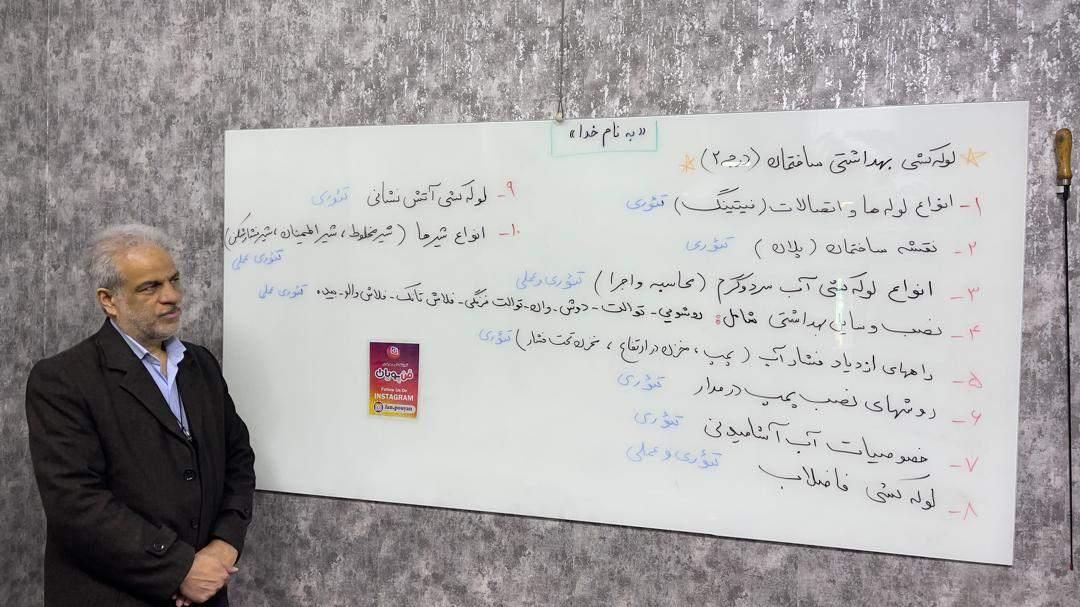 «به نام خدا»
لوله کشی بهداشتی ساختمان (درجه ۲)
۱- انواع لوله ها و اتصالات (فیتینگ) تئوری
۲- نقشه ساختمان (پلان) تئوری
۳- انواع لوله کشی آب سرد و گرم (محاسبه و اجرا) تئوری و عملی
۴- نصب وسایل بهداشتی شامل: روشویی - توالت - دوش - وان - توالت فرنگی - فلاش تانک - فلاش والو - بیده تئوری عملی
۵- راههای ازدیاد فشار آب (پمپ، مخزن در ارتفاع، مخزن تحت فشار) تئوری
۶- روشهای نصب پمپ در مدار تئوری
۷- خصوصیات آب آشامیدنی تئوری
۸- لوله کشی فاضلاب تئوری و عملی
۹- لوله کشی آتش نشانی تئوری
۱۰- انواع شیرها (شیر مخلوط، شیر اطمینان، شیر فشار شکن)
تئوری عملی
فن پویان
Follow Us On
INSTAGRAM
fan.pouyan